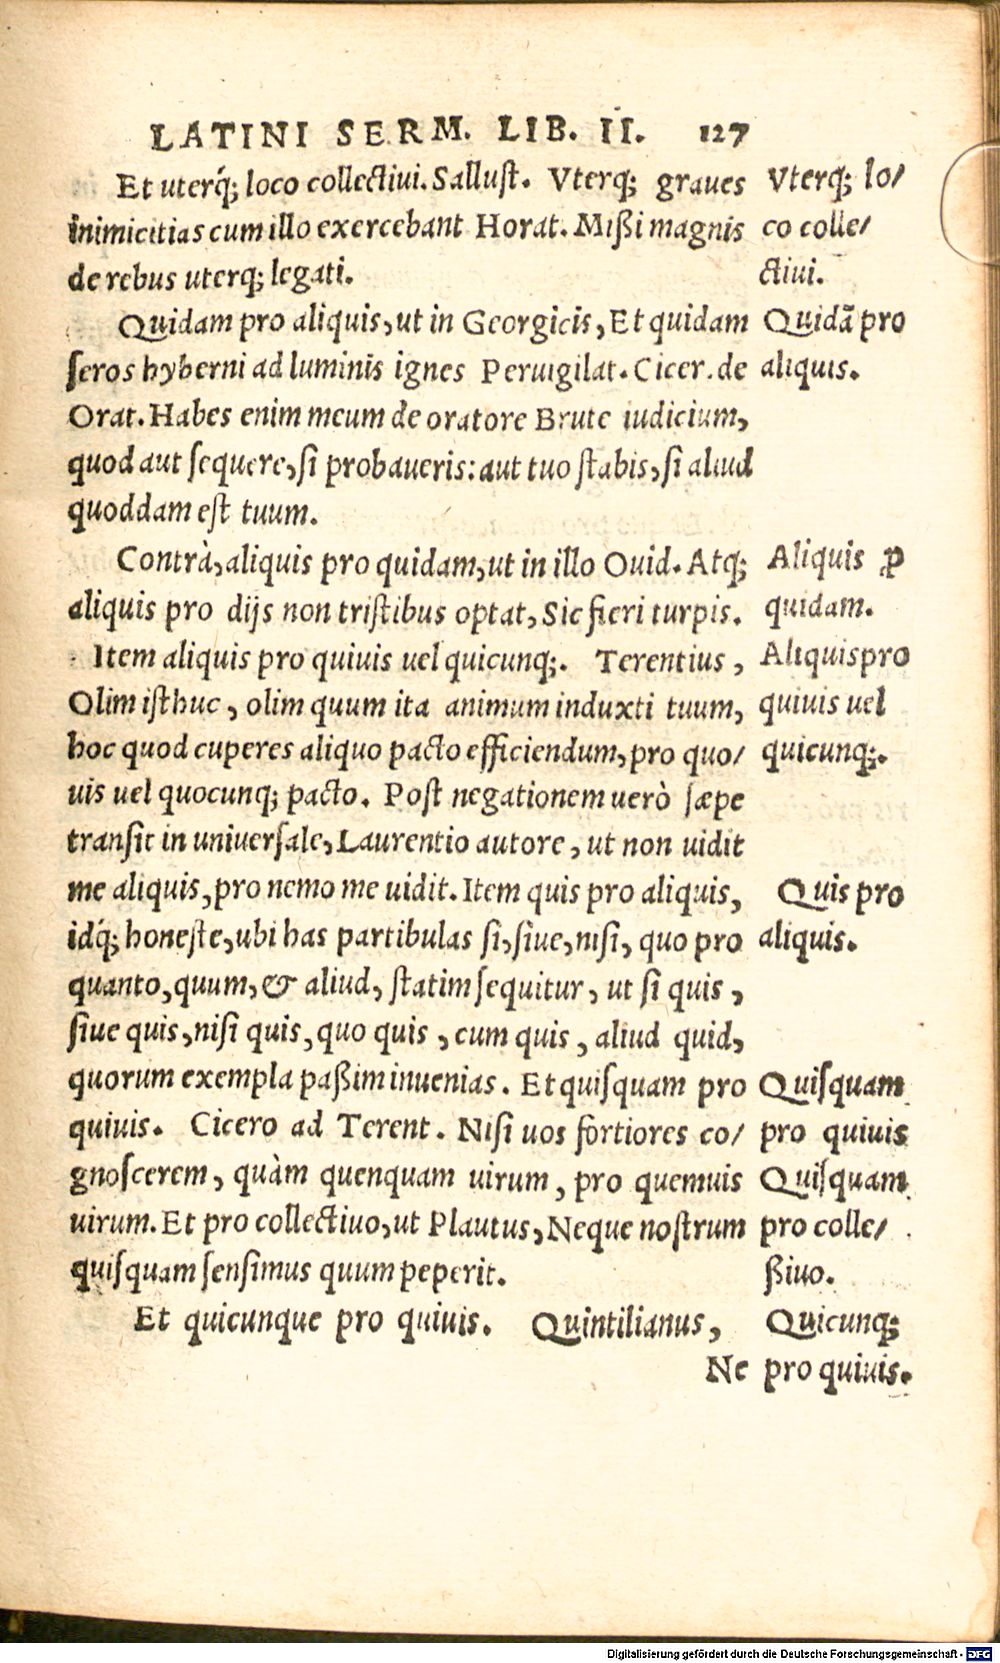 LATINI SERM. LIB. II. 127
Et uterq́; loco collectiui. Sallust. Vterq; graues
inimicitias cum illo exercebant Horat. Mißi magnis
de rebus uterq; legati.
Vterq; lo/
co colle/
ctiui.
Quidam pro aliquis, ut in Georgicis, Et quidam
seros hyberni ad luminis ignes Peruigilat. Cicer. de
Orat. Habes enim meum de oratore Brute iudicium,
quod aut sequere, si probaueris: aut tuo stabis, si aliud
quoddam est tuum.
Quidã pro
aliquis.
Contrà, aliquis pro quidam, ut in illo Ouid. Atq;
aliquis pro dijs non tristibus optat, Sic fieri turpis.
Aliquis ꝓ
quidam.
Item aliquis pro quiuis uel quicunq;. Terentius,
Olim isthuc, olim quum ita animum induxti tuum,
hoc quod cuperes aliquo pacto efficiendum, pro quo/
uis uel quocunq; pacto. Post negationem uerò sæpe
transit in uniuersale, Laurentio autore, ut non uidit
me aliquis, pro nemo me uidit. Item quis pro aliquis,
idq́; honeste, ubi has partibulas si, siue, nisi, quo pro
quanto, quum, & aliud, statim sequitur, ut si quis,
siue quis, nisi quis, quo quis, cum quis, aliud quid,
quorum exempla paßim inuenias. Et quisquam pro
quiuis. Cicero ad Terent. Nisi uos fortiores co/
gnoscerem, quàm quenquam uirum, pro quemuis
uirum. Et pro collectiuo, ut Plautus, Neque nostrum
quisquam sensimus quum peperit.
Aliquis pro
quiuis uel
quicunq;.
Quis pro
aliquis.
Quisquam
pro quiuis
Quisquam
pro colle/
ßiuo.
Et quicunque pro quiuis. Quintilianus,
Ne
Quicunq;
pro quiuis.
Digitalisierung gefördert durch die Deutsche Forschungsgemeinschaft - DFG